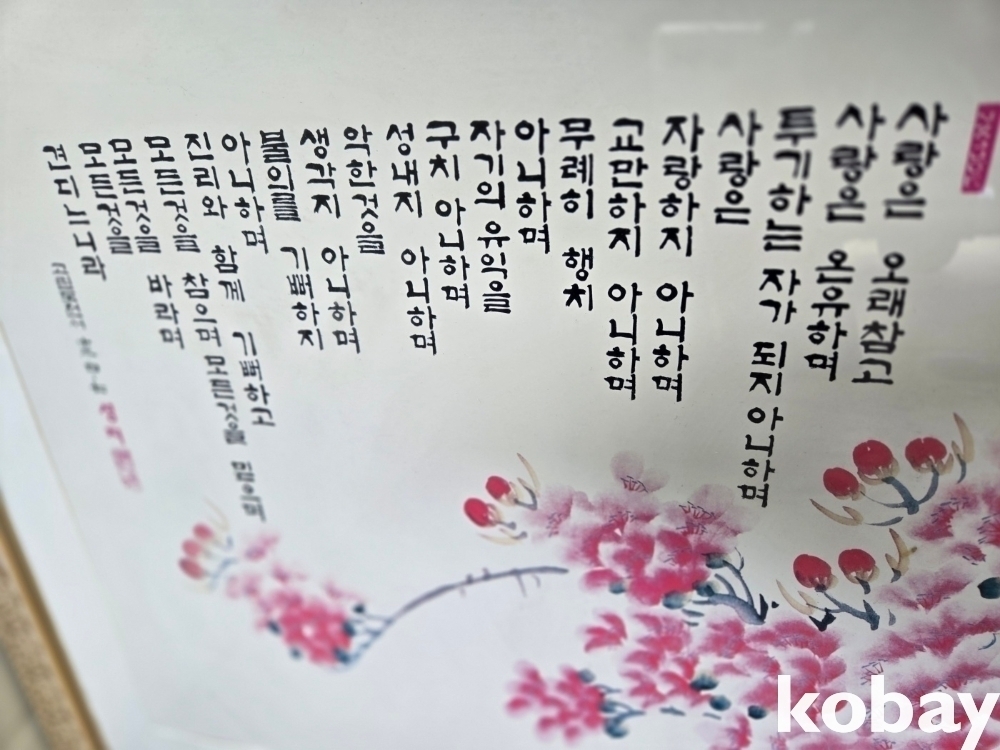 사랑은 오래참고
사랑은 온유하며
투기하는 자가 되지 아니하며
사랑은
자랑하지 아니하며
교만하지 아니하며
무례히 행치
아니하며
자기의 유익을
구치 아니하며
성내지 아니하며
악한것을
생각지 아니하며
불의를 기뻐하지
아니하며
진리와 함께 기뻐하고
모든것을 참으며 모든것을 믿으며
모든것을 바라며
모든것을
견디느니라
고린도전서
kobay